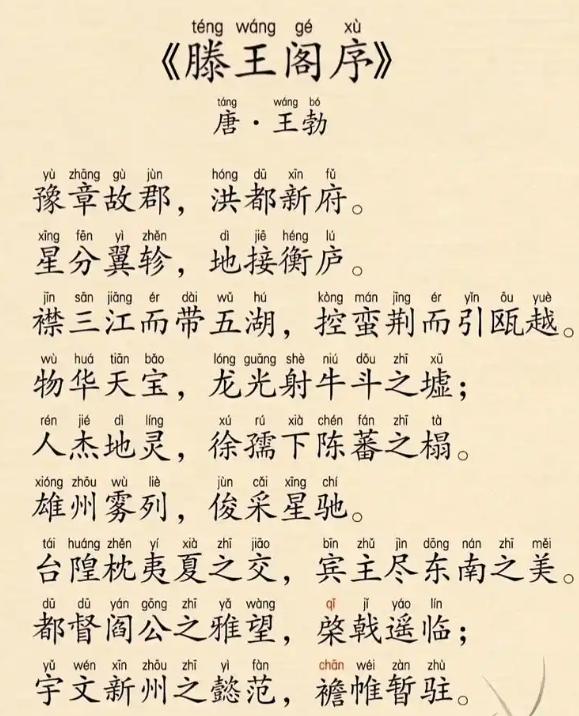 téng wáng gé xù
《滕王阁序》
táng wáng bó
唐·王勃
yù zhāng gù jùn hóng dū xīn fǔ
豫章故郡，洪都新府。
xīng fēn yì zhěn dì jiē héng lú
星分翼轸，地接衡庐。
jīn sān jiāng ér dài wǔ hú kòng mán jīng ér yǐn ōu yuè
襟三江而带五湖，控蛮荆而引瓯越。
wù huá tiān bǎo lóng guāng shè niú dǒu zhī xū
物华天宝，龙光射牛斗之墟；
rén jié dì líng xú rú xià chén fán zhī tà
人杰地灵，徐孺下陈蕃之榻。
xióng zhōu wù liè jùn cǎi xīng chí
雄州雾列，俊采星驰。
tái huáng zhěn yí xià zhī jiāo bīn zhǔ jìn dōng nán zhī měi
台隍枕夷夏之交，宾主尽东南之美。
dū dū yán gōng zhī yǎ wàng qǐ jǐ yáo lín
都督阎公之雅望，棨戟遥临；
yǔ wén xīn zhōu zhī yì fàn chān wéi zàn zhù
宇文新州之懿范，襜帷暂驻。